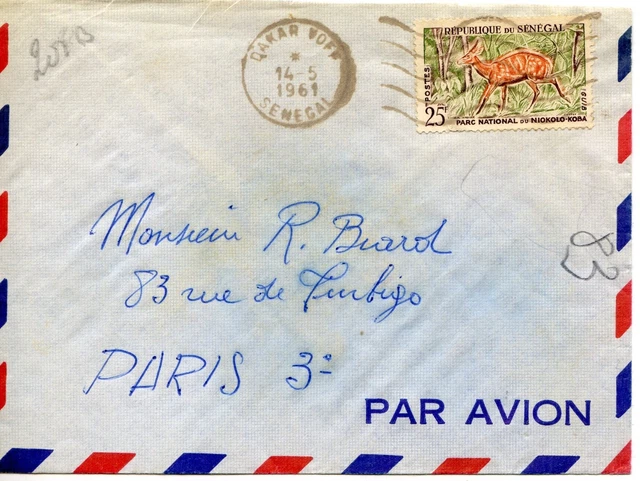 208B
DAKAR YOFF
14-5
1961
SENEGAL
RÉPUBLIQUE DU SÉNÉGAL
POSTES
GUIB
25F
PARC NATIONAL DU NIOKOLO-KOBA
Monsieur R. Biard
83 rue de Turbigo
PARIS 3e
PAR AVION